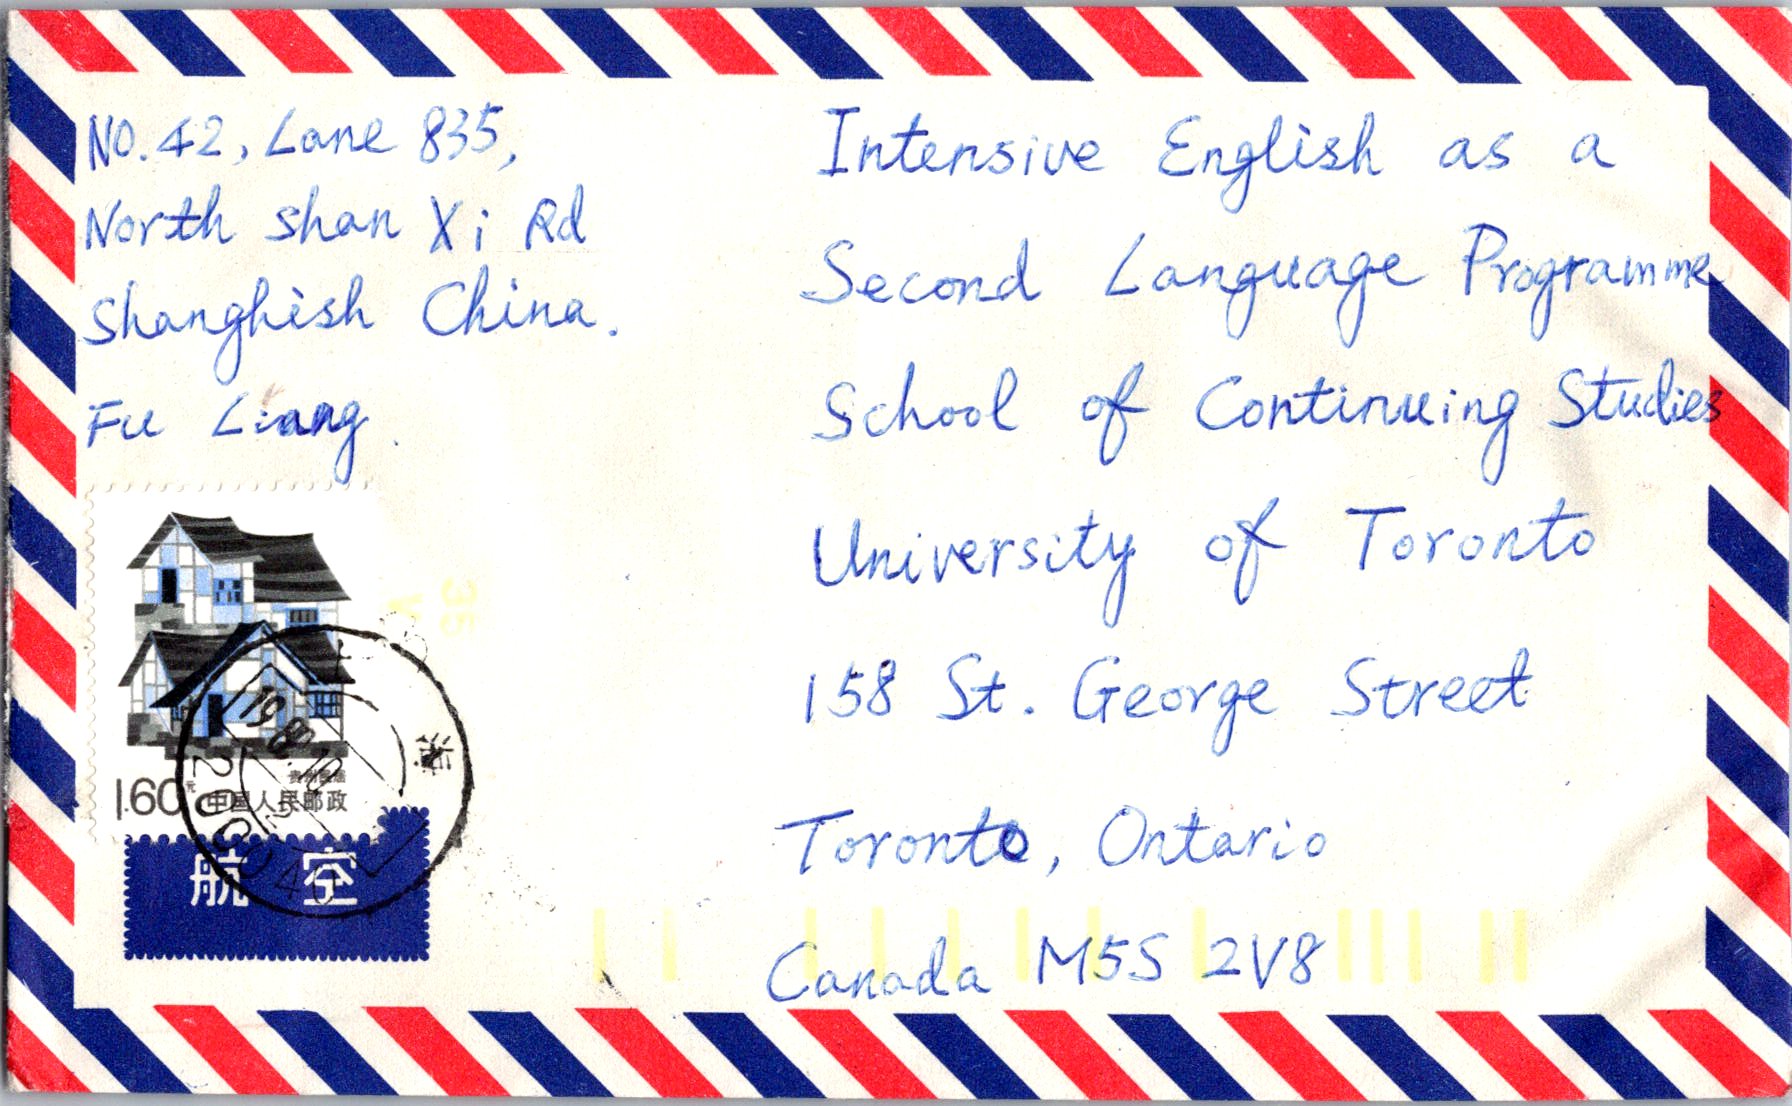 NO. 42, Lane 835,
North Shan Xi Rd
Shanghish China.
Fu Liang.
Intensive English as a
Second Language Programme
School of Continuing Studies
University of Toronto
158 St. George Street
Toronto, Ontario
Canada M5S 2V8
1.60元
中国人民邮政
上海
200040
航 空